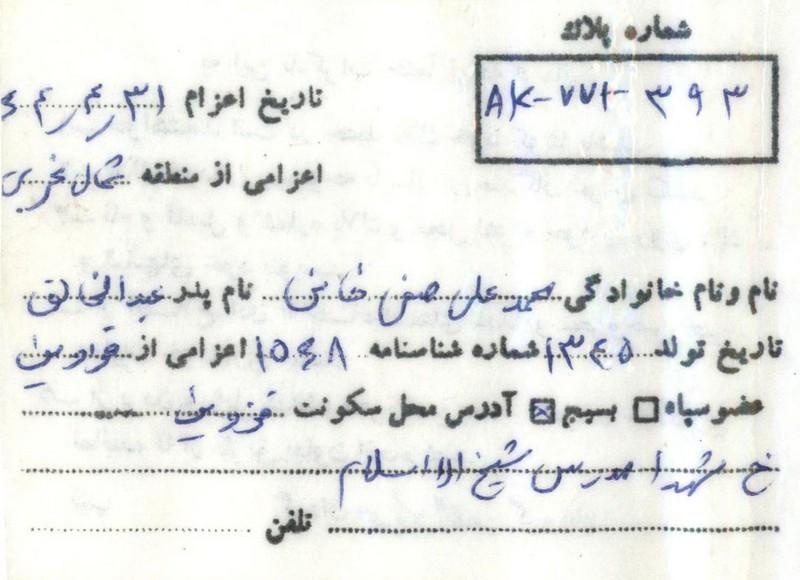 شماره پلاک
AK-۷۷۱- ۳۹۳
تاریخ اعزام ۳۱ر۴ر۶۴
اعزامی از منطقه شمال غرب
نام و نام خانوادگی محمد علی صفی خانی نام پدر عبدالخالق
تاریخ تولد ۱۳۴۵ شماره شناسنامه ۱۵۴۸ اعزامی از قزوین
عضو سپاه □ بسیج ☒ آدرس محل سکونت قزوین
خ شهدا مدرس شیخ الاسلام
تلفن